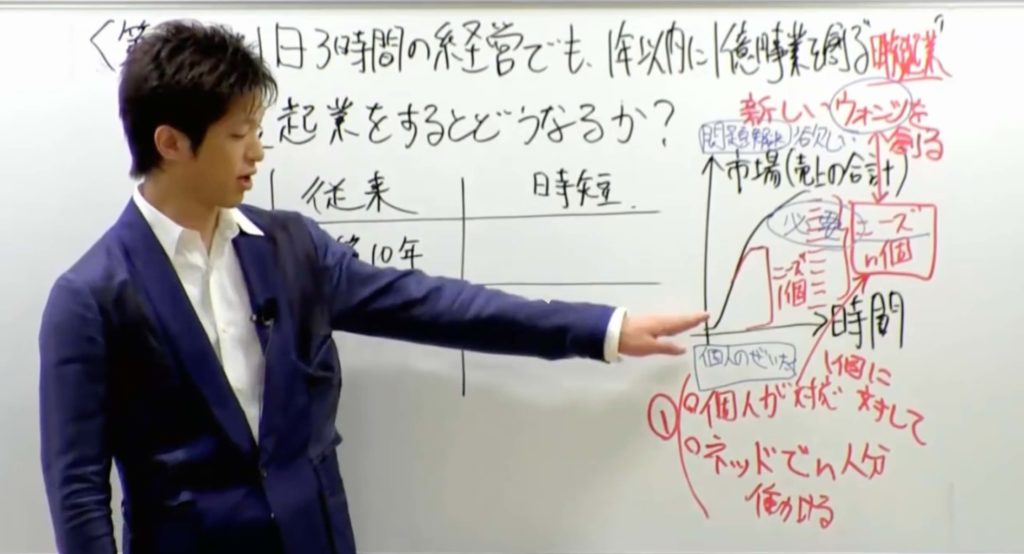 1日3時間の経営でも、1年以内に1億円事業を創る
起業をするとどうなるか?
従来
時短
10年
新しいウォンツを
創る
問題解決 欲しい
市場(売上の合計)
必要
ニーズ
n個
ニーズ
1個
時間
個人のぜいたく
1個に
対して
①
個人が対応
ネットでn人分
働かける